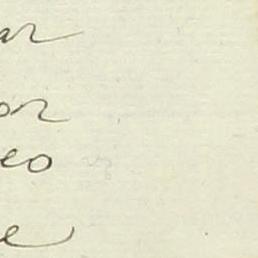 ar
or
eo
e